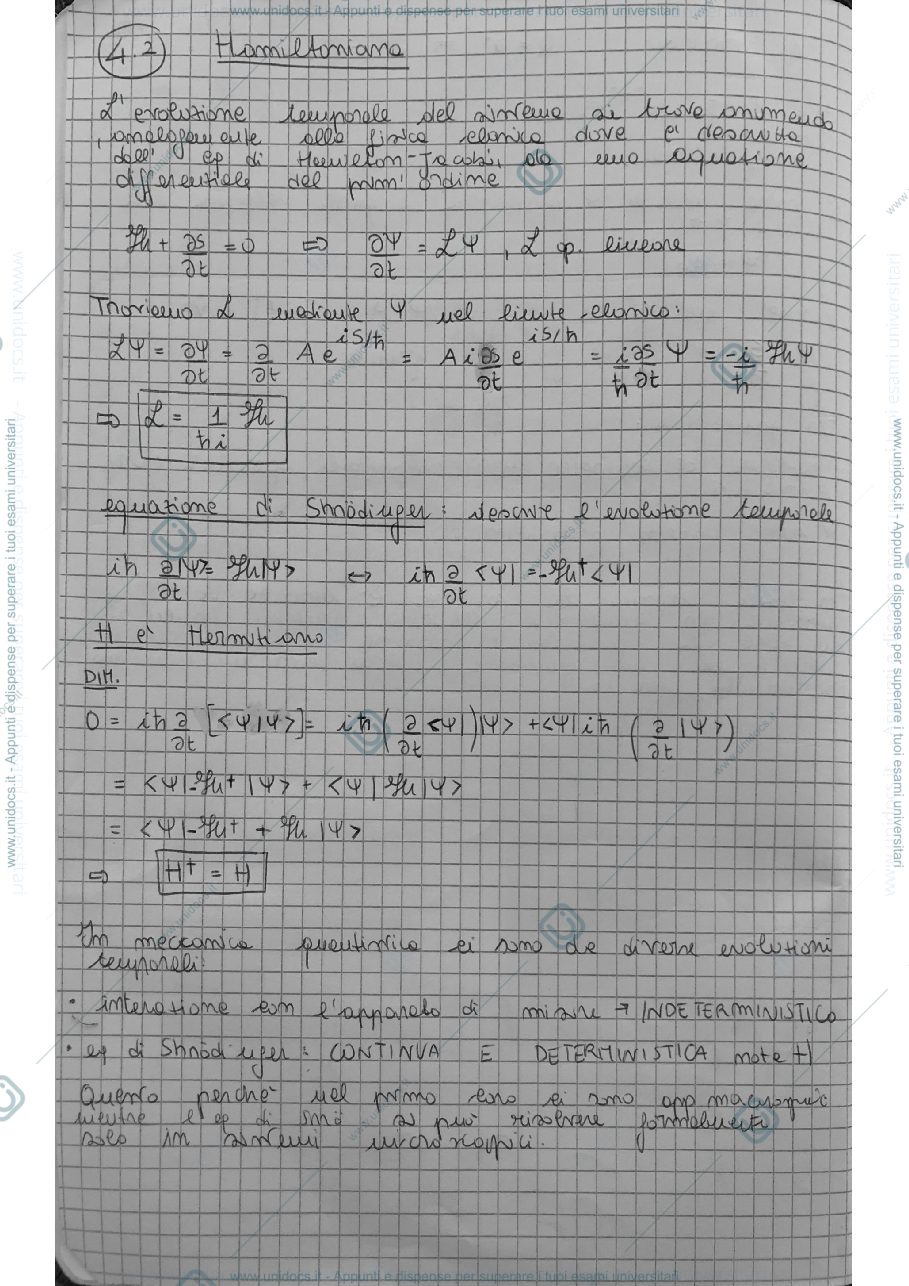 www.unidocs.it - Appunti e dispense per superare i tuoi esami universitari
4.2 Hamiltoniana
L'evoluzione temporale del sistema si trova assumendo
, analogamente alla fisica classica dove e' descritta
dall' eq di Hamilton-Jacobi, da una equazione
differenziale del prim' ordine
H + ∂S/∂t = 0 ⇒ ∂Ψ/∂t = ℒΨ , ℒ op. lineare
Troviamo ℒ mediante Ψ nel limite classico:
ℒΨ = ∂Ψ/∂t = ∂/∂t A e^{iS/ħ} = A i ∂S/∂t e^{iS/ħ} = i/ħ ∂S/∂t Ψ = -i/ħ HΨ
⇒ ℒ = 1/ħi H
equazione di Shrödinger: descrive l'evoluzione temporale
iħ ∂/∂t |Ψ> = H|Ψ> ↔ iħ ∂/∂t <Ψ| = -H† <Ψ|
H e' Hermitiano
DIM.
0 = iħ ∂/∂t [<Ψ|Ψ>] = iħ (∂/∂t <Ψ|) |Ψ> + <Ψ| iħ (∂/∂t |Ψ>)
= <Ψ|-H† |Ψ> + <Ψ| H |Ψ>
= <Ψ| -H† + H |Ψ>
⇒ H† = H
In meccanica quantistica ci sono due diverse evoluzioni
temporali:
• interazione con l'apparato di misure → INDETERMINISTICO
• eq di Shrödinger : CONTINUA E DETERMINISTICA nota H
Questo perche' nel primo caso ci sono app macroscopici
mentre l'eq. di Shrö si può risolvere
solo in sistemi microscopici.
www.unidocs.it - Appunti e dispense per superare i tuoi esami universitari